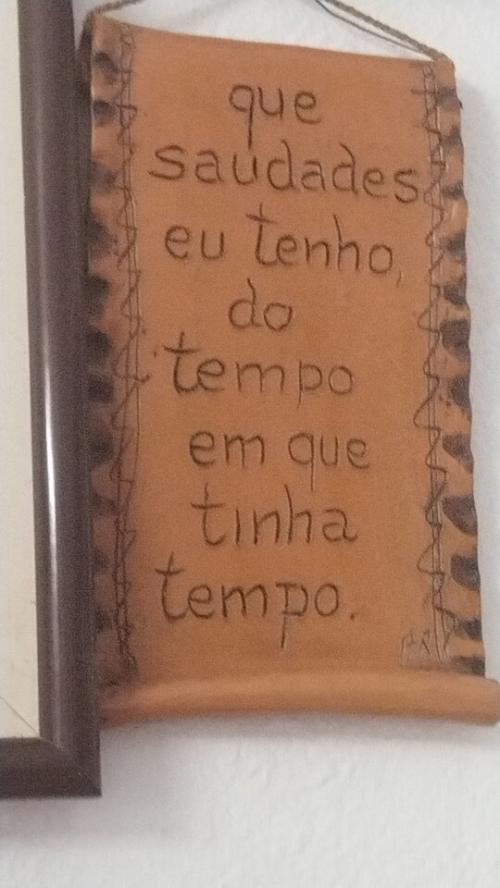 que
saudades
eu tenho,
do
tempo
em que
tinha
tempo.